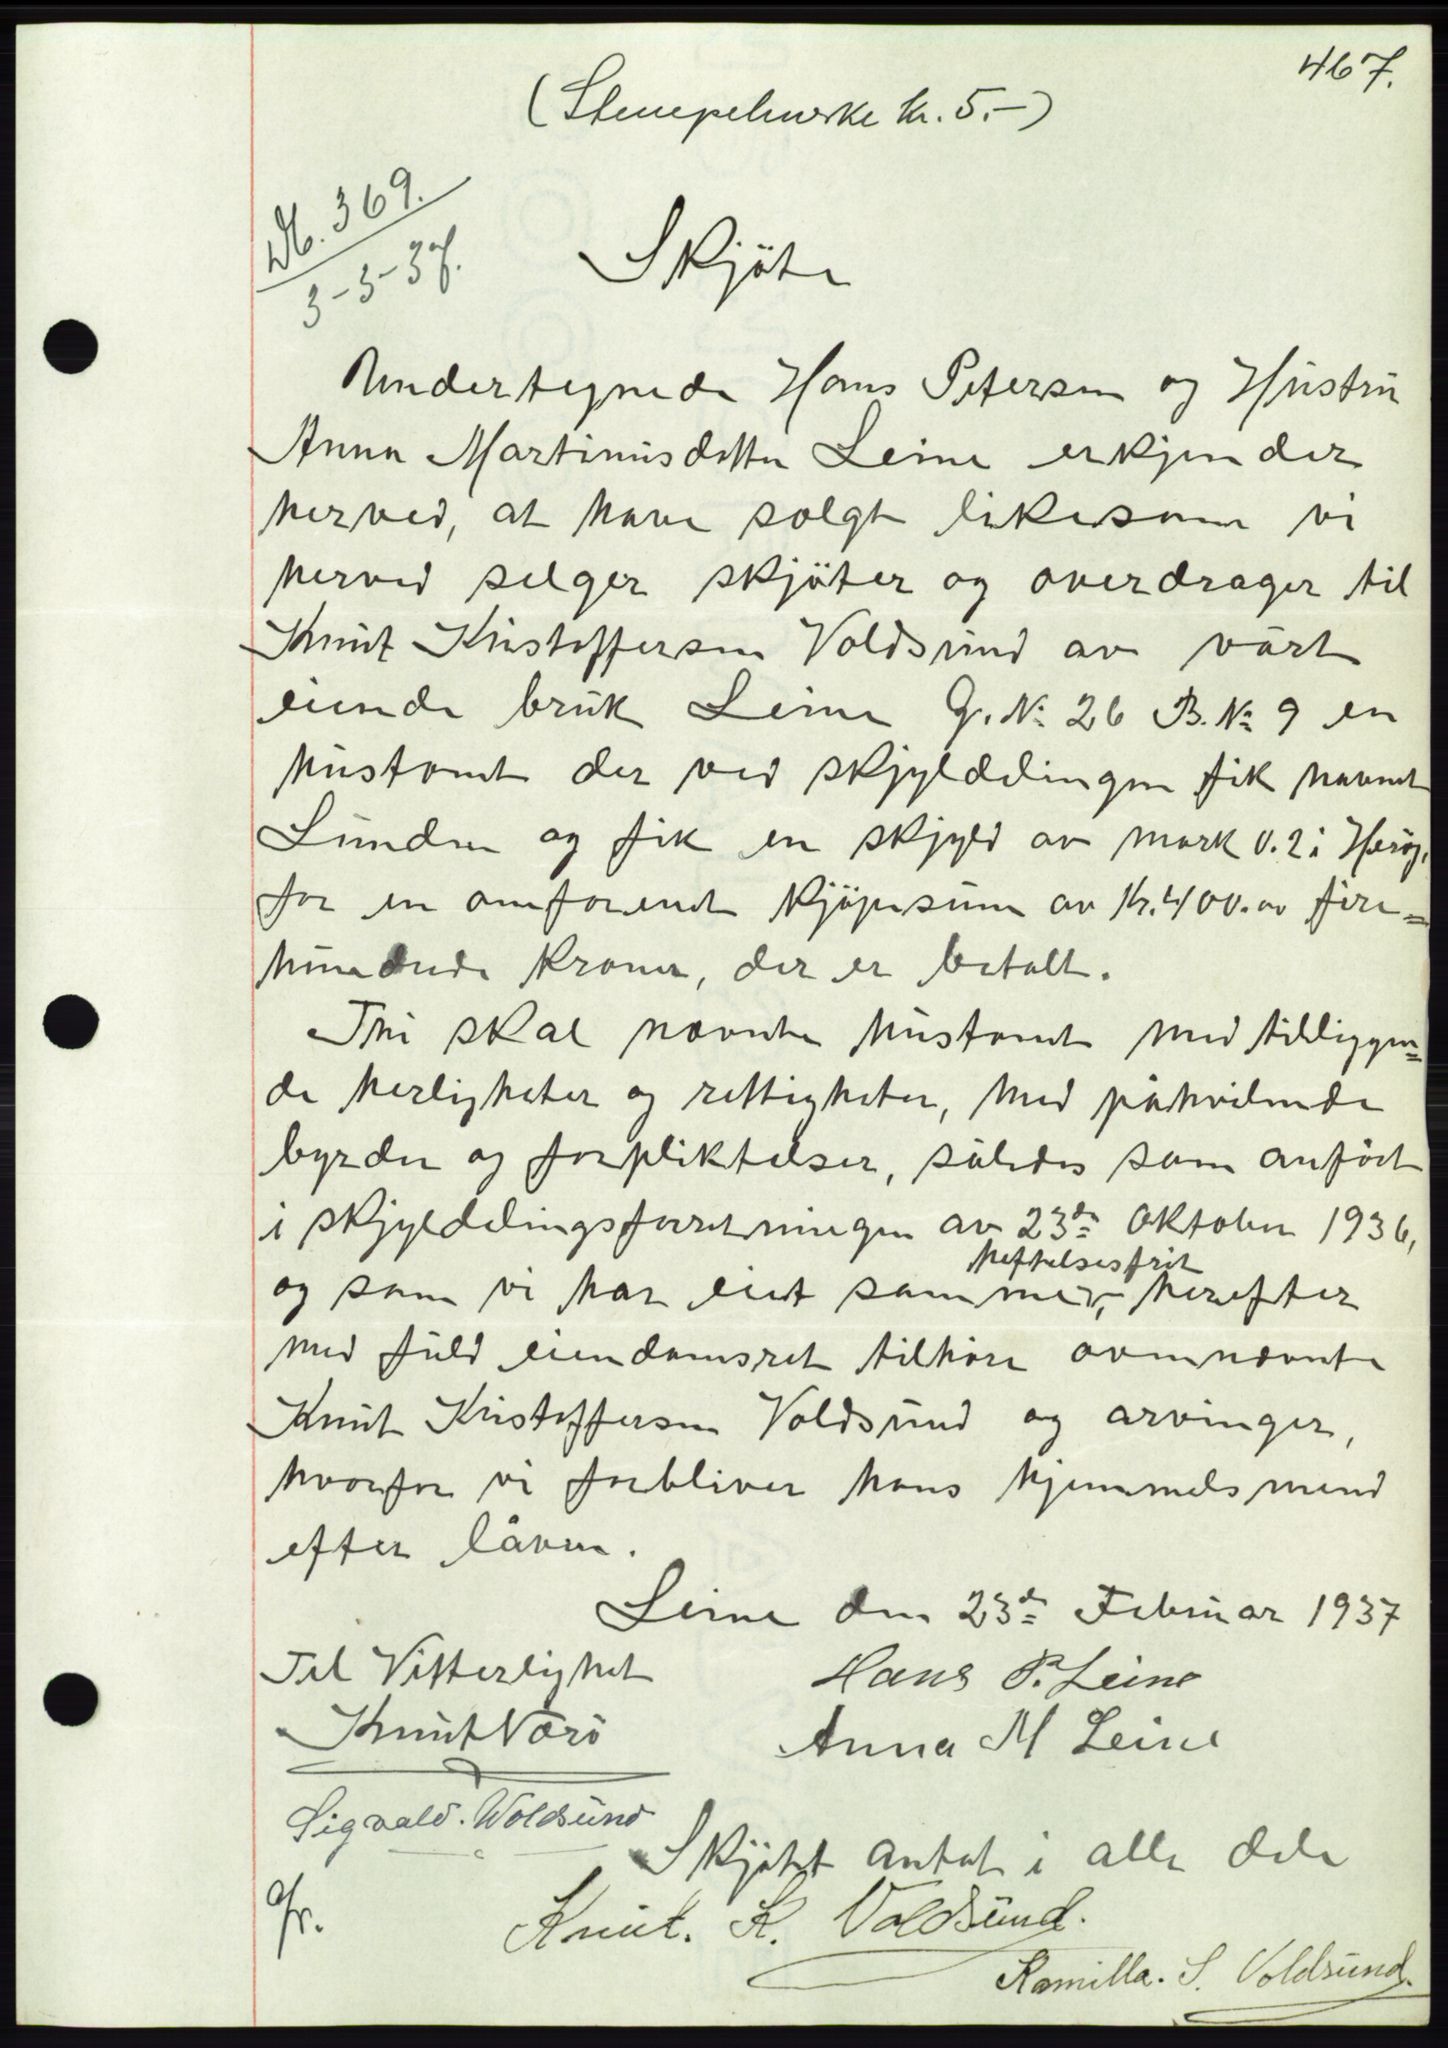 467.
(Stempelmerke kr. 5.-)
Db. 369.
3-3-37.
Skjöte
Undertegnede Hans Petersen og Hustru
Anna Martinusdatter Leine erkjender
herved, at have solgt likesom vi
herved selger skjöter og overdrager til
Knut Kristoffersen Voldsund av vårt
eiende bruk Leine G. № 26 B. № 9 en
hustomt der ved skylddelingen fik navnet
Lunden og fik en skjyld av mark 0.2 i Heröy,
for en omforenet kjöpesum av Kr. 400.00 fire=
hundrede kroner, der er betalt.
Thi skal nævnte hustomt med tilliggen=
de herligheter og rettigheter, med påhvilende
byrder og forpliktelser, således som anfört
i skjylddelingsforretningen av 23de Oktober 1936,
heftelsesfrit
og som vi har eiet samme, herefter
med fuld eiendomsret tilhöre ovennævnte
Knut Kristoffersen Voldsund og arvinger,
hvorfor vi forbliver hans hjemmelsmend
efter låven.
Leine den 23de Februar 1937
Til Vitterlighet
Hans P. Leine
Knut Nærö
Anna M Leine
Sigvald. Woldsund
Skjötet antat i alle dele
Knut. K. Voldsund.
Kamilla. S. Voldsund.